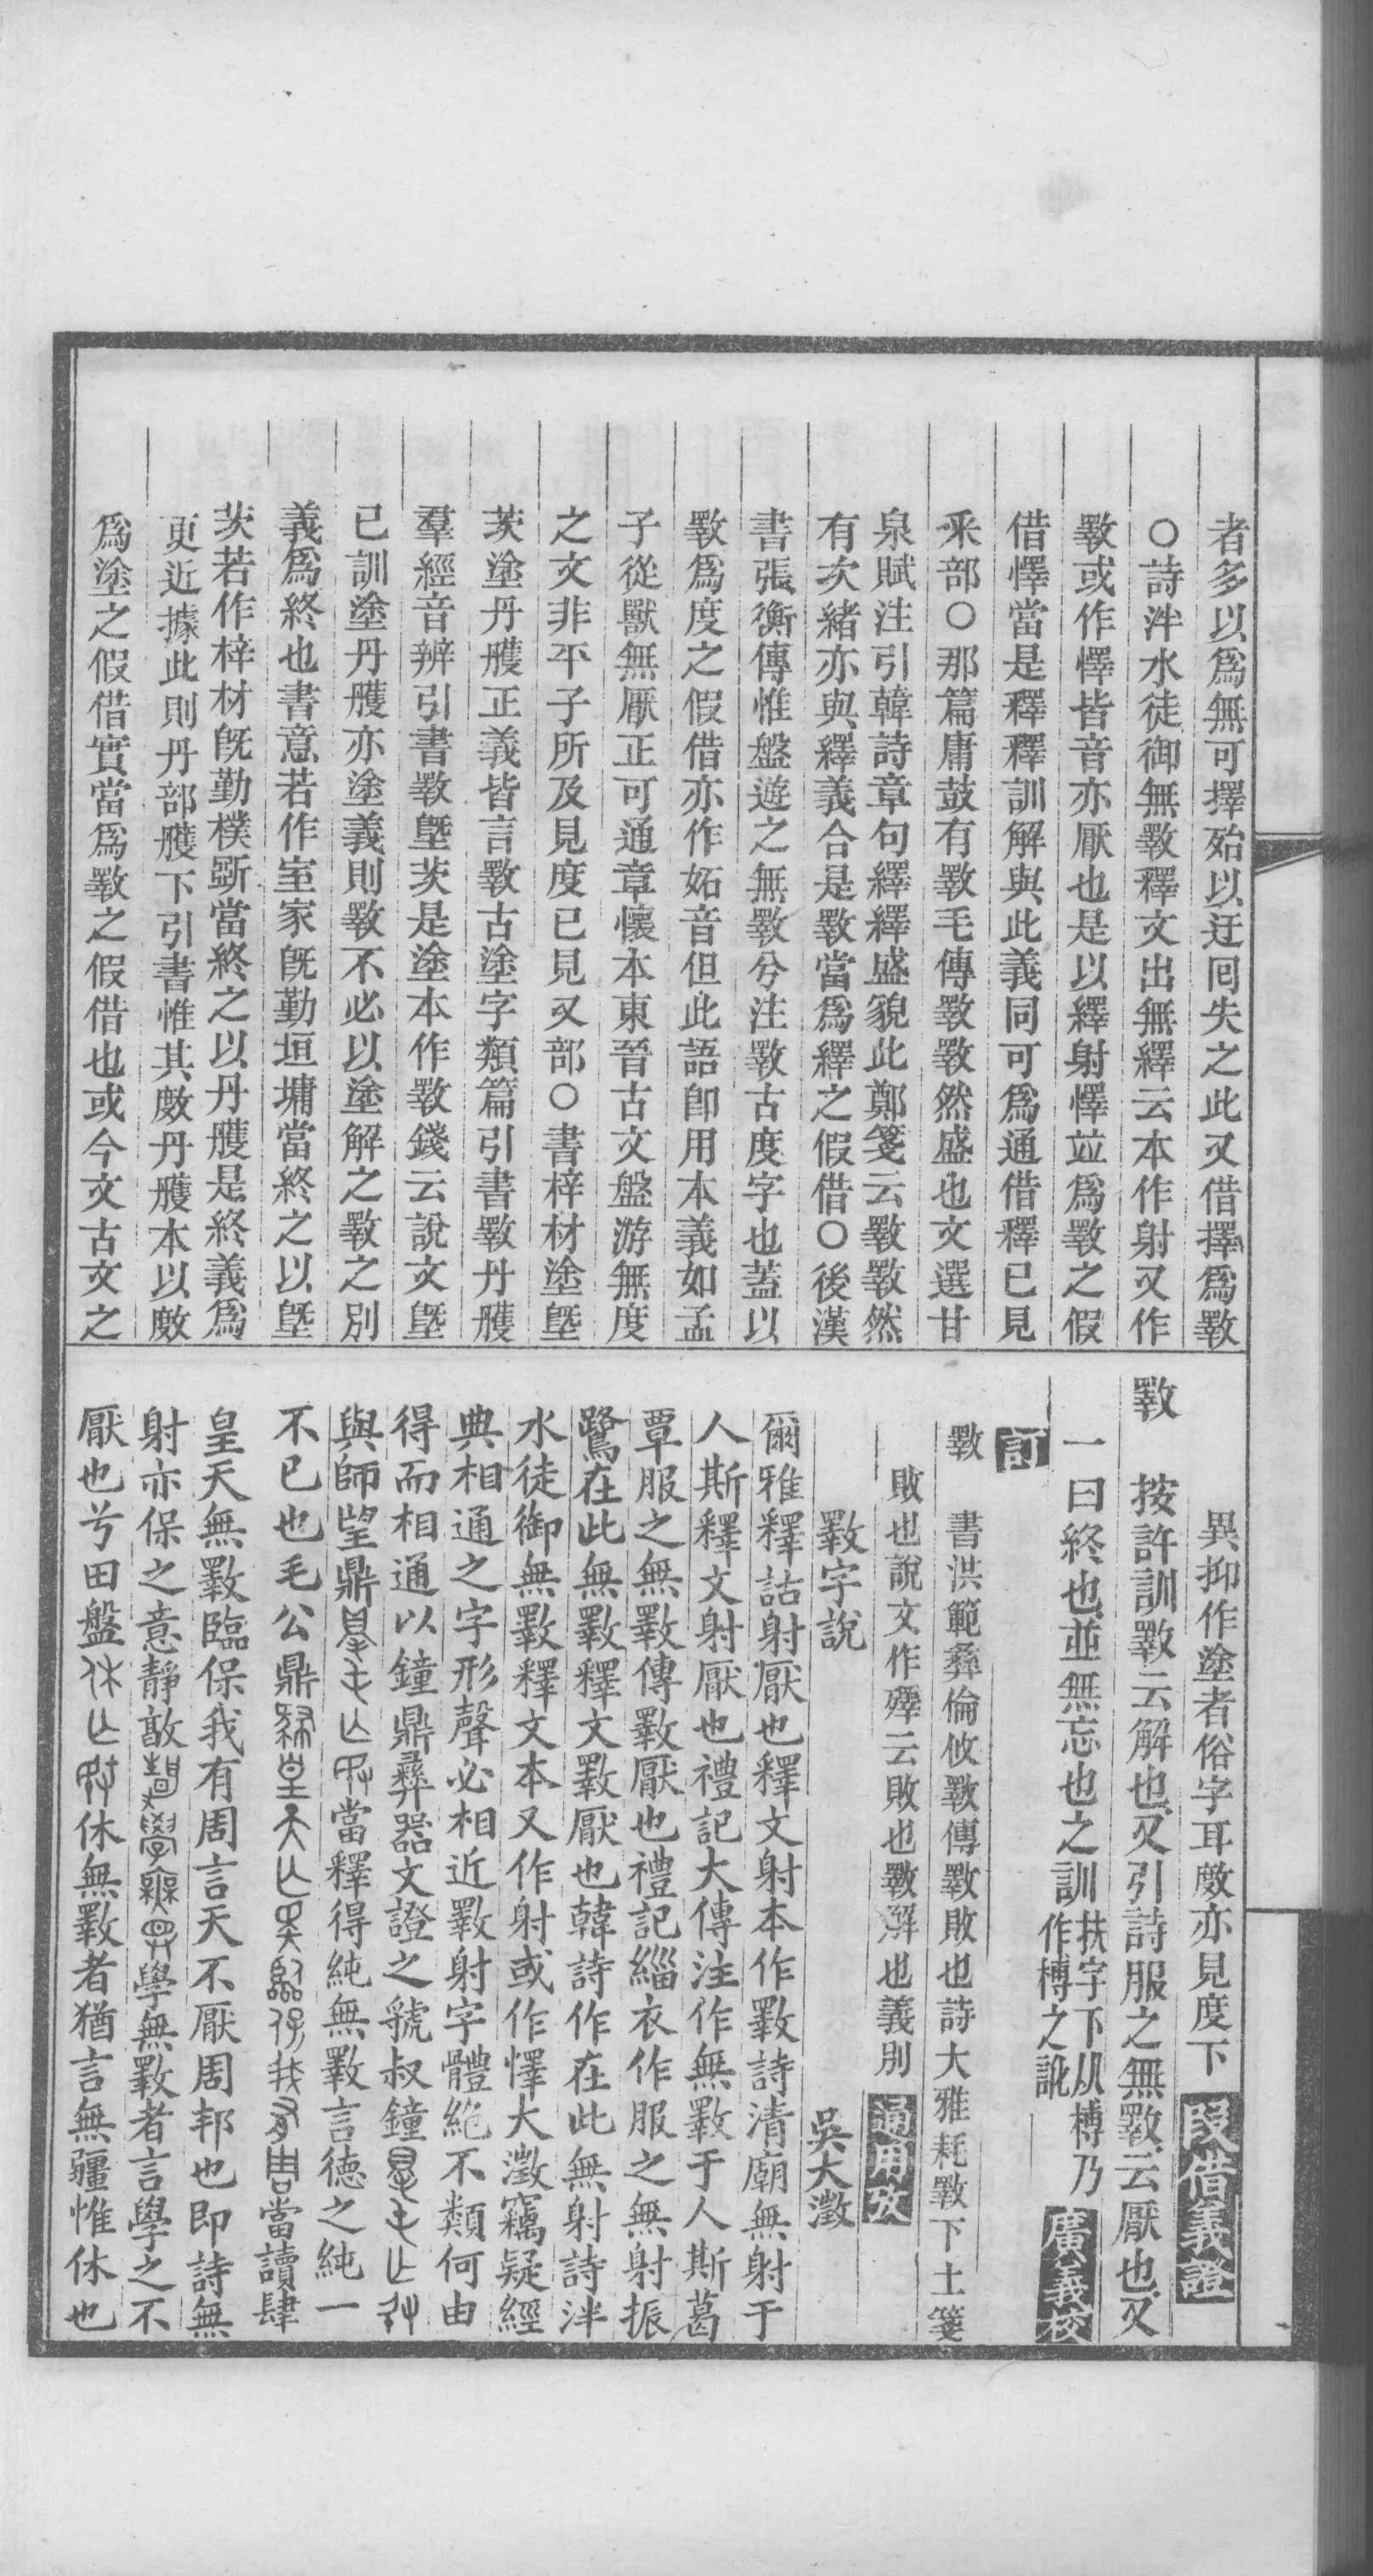 者多以爲無可擇殆以迂囘失之此又借擇爲斁
○詩泮水徒御無斁釋文出無繹云本作射又作
斁或作懌皆音亦厭也是以繹射懌竝爲斁之假
借懌當是釋釋訓解與此義同可爲通借釋已見
釆部○那篇庸鼓有斁毛傳斁斁然盛也文選甘
泉賦注引韓詩章句繹繹盛貌此鄭箋云斁斁然
有次緒亦與繹義合是斁當爲繹之假借○後漢
書張衡傳惟盤遊之無斁兮注斁古度字也蓋以
斁爲度之假借亦作妬音但此語卽用本義如孟
子從獸無厭正可通章懷本東晉古文盤游無度
之文非平子所及見度已見又部○書梓材塗墍
茨塗丹雘正義皆言斁古塗字類篇引書斁丹雘
羣經音辨引書斁墍茨是塗本作斁錢云說文墍
已訓塗丹雘亦塗義則斁不必以塗解之斁之別
義爲終也書意若作室家旣勤垣墉當終之以墍
茨若作梓材旣勤樸斲當終之以丹雘是終義爲
更近據此則丹部雘下引書惟其敷丹雘本以敷
爲塗之假借實當爲斁之假借也或今文古文之
異抑作塗者俗字耳敷亦見度下 叚借義證
斁 按許訓斁云解也又引詩服之無斁云厭也又
一曰終也並無忘也之訓 扶字下从榑乃作榑之訛 廣義校
訂
斁 書洪範彝倫攸斁傳斁敗也詩大雅耗斁下土箋
敗也說文作殬云敗也斁解也義別 通用攷
斁字說 吳大澂
爾雅釋詁射厭也釋文射本作斁詩清廟無射于
人斯釋文射厭也禮記大傳注作無斁于人斯葛
覃服之無斁傳斁厭也禮記緇衣作服之無射振
鷺在此無斁釋文斁厭也韓詩作在此無射詩泮
水徒御無斁釋文本又作射或作懌大澂竊疑經
典相通之字形聲必相近斁射字體絕不類何由
得而相通以鐘鼎彝器文證之虢叔鐘
與師望鼎 當釋得純無斁言德之純一
不已也毛公鼎 當讀肆
皇天無斁臨保我有周言天不厭周邦也卽詩無
射亦保之意靜敦 學無斁者言學之不
厭也兮田盤 休無斁者猶言無疆惟休也